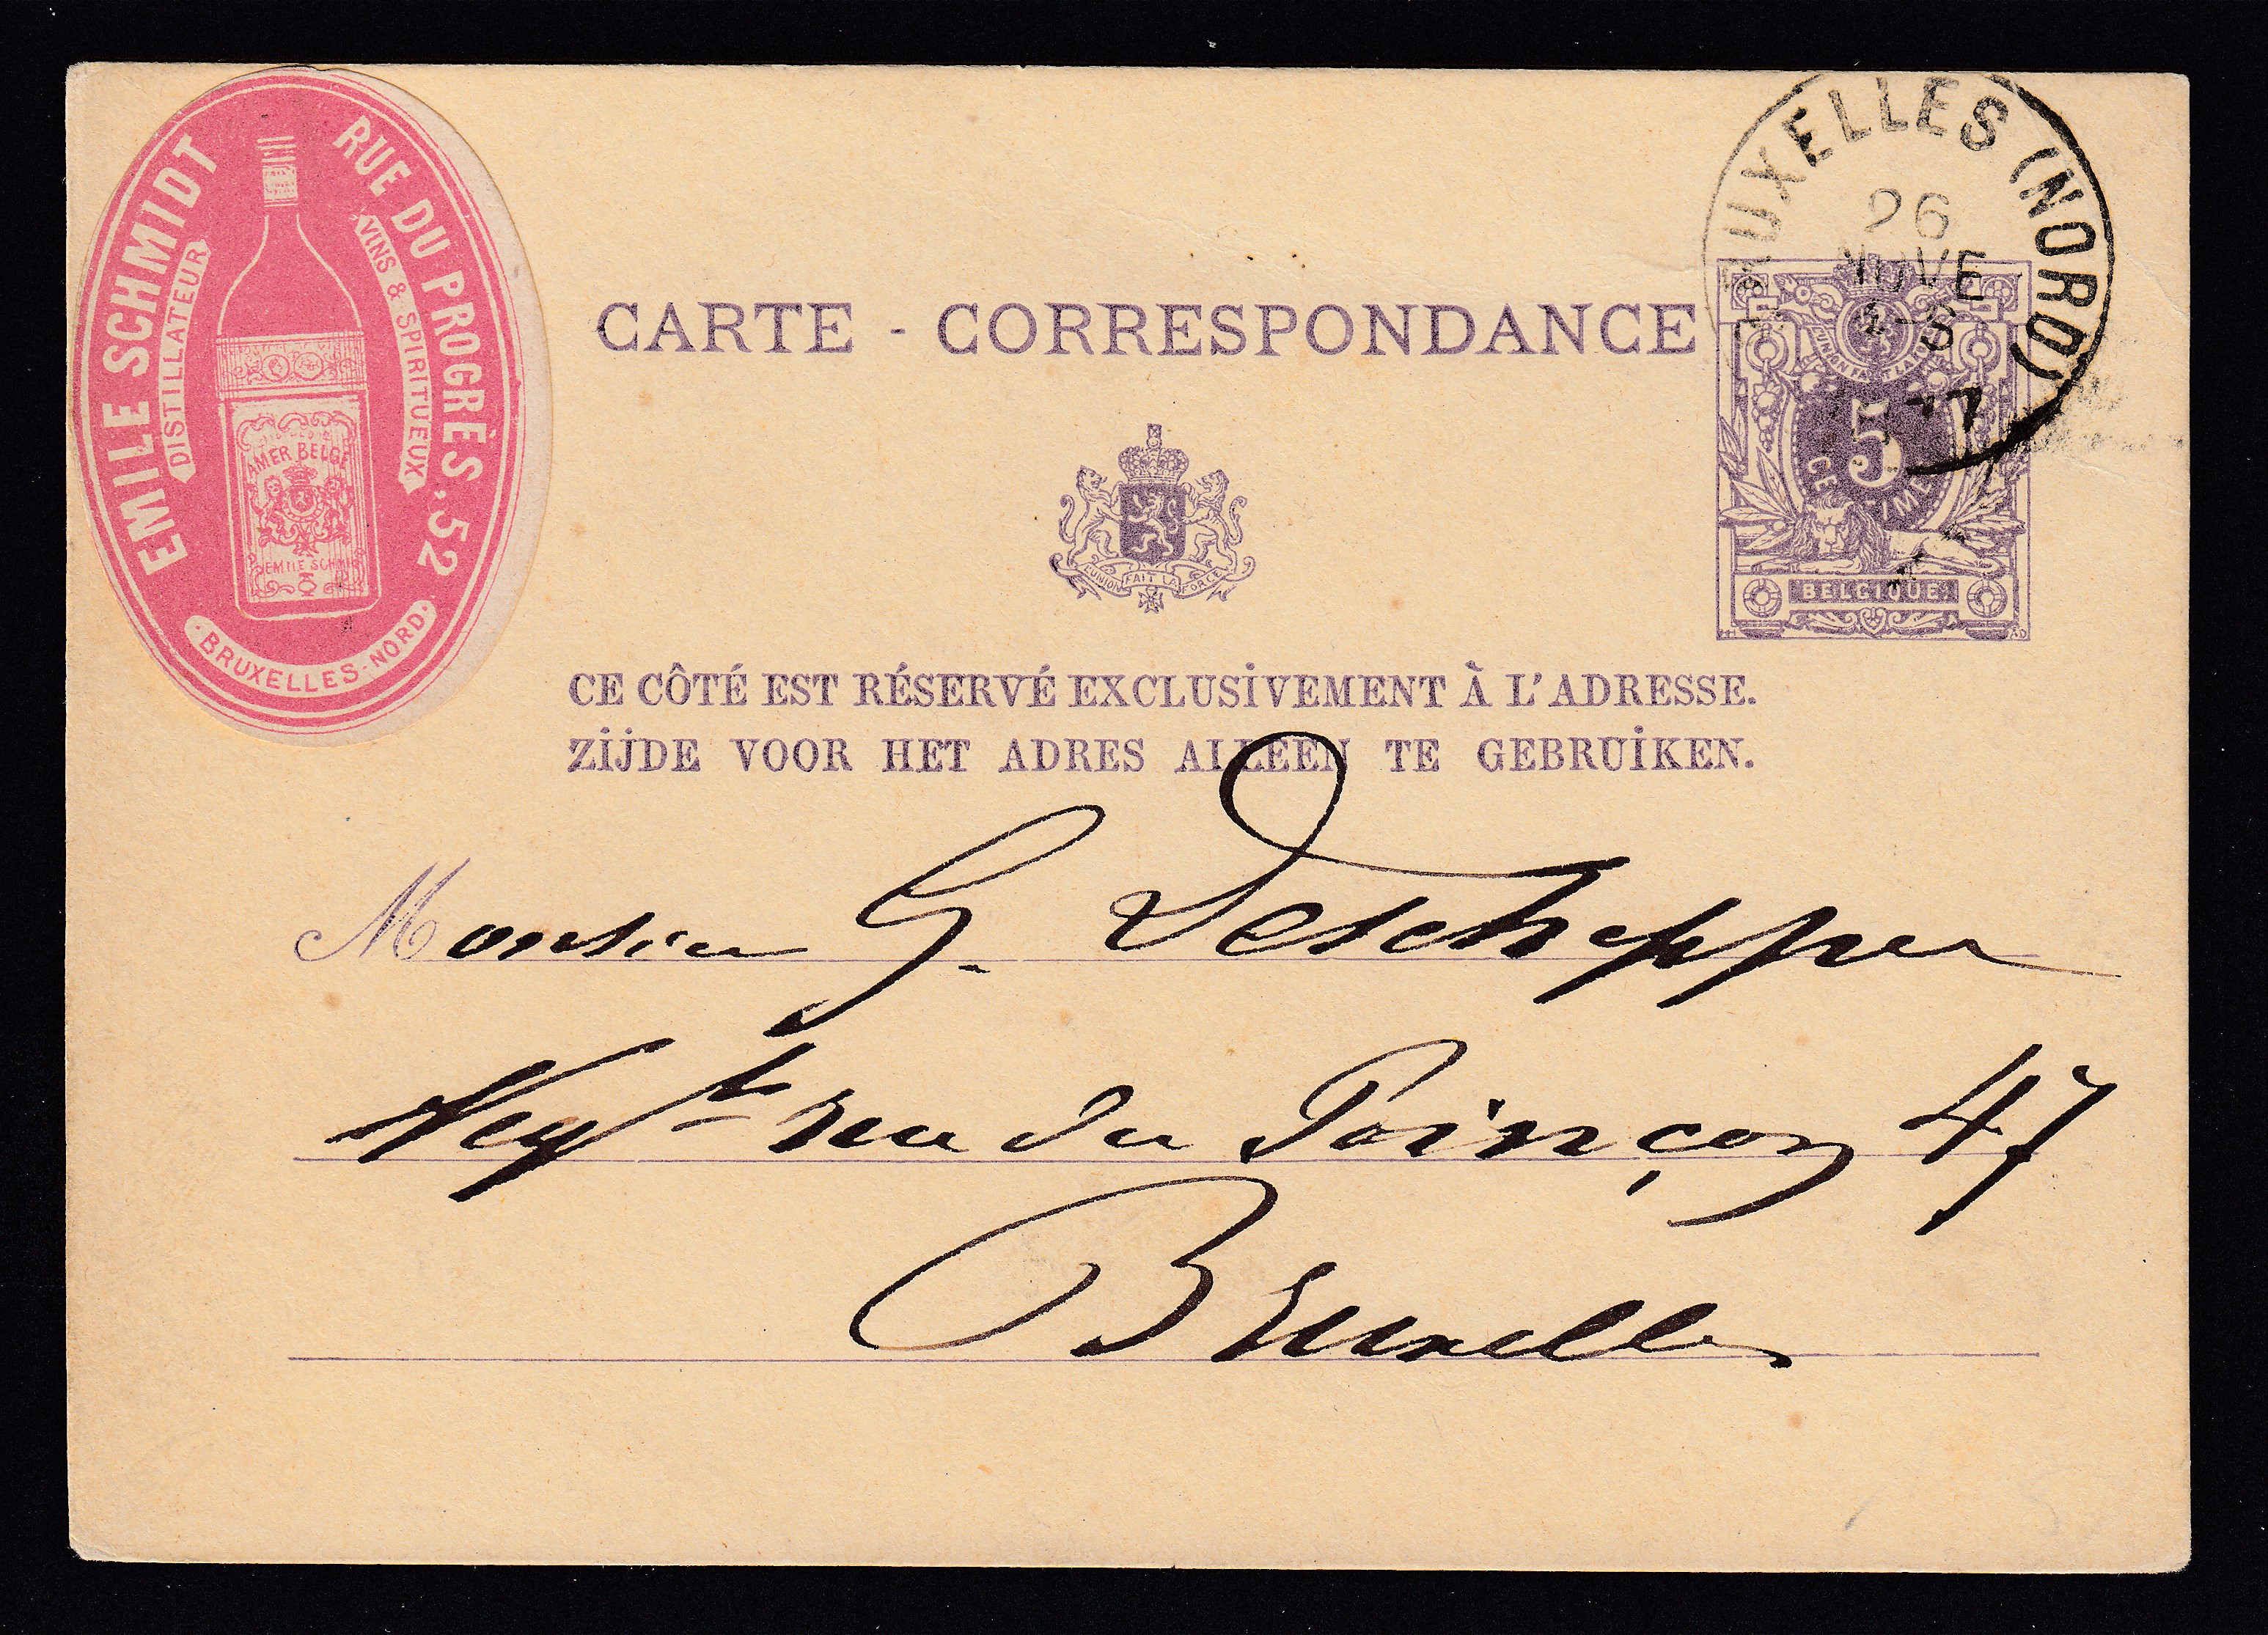 EMILE SCHMIDT
DISTILLATEUR
RUE DU PROGRÈS, 52
VINS & SPIRITUEUX
AMER BELGE
EMILE SCHMIDT
BRUXELLES-NORD
CARTE - CORRESPONDANCE
BRUXELLES (NORD)
26
NOVE
77
L'UNION FAIT LA FORCE
5
BELGIQUE
L'UNION FAIT LA FORCE
CE CÔTÉ EST RÉSERVÉ EXCLUSIVEMENT À L'ADRESSE.
ZIJDE VOOR HET ADRES ALLEEN TE GEBRUIKEN.
Monsieur G. Deschepper
Negt rue du Poinçon 47
Bruxelles